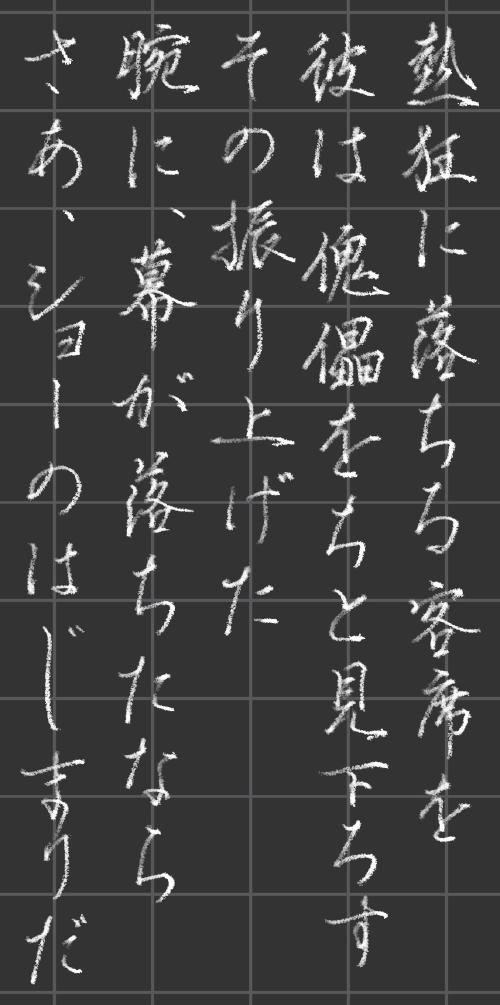 熱狂に落ちる客席を
彼は傀儡をちと見下ろす
その振り上げた
腕に、幕が落ちたなら
さあ、ショーのはじまりだ